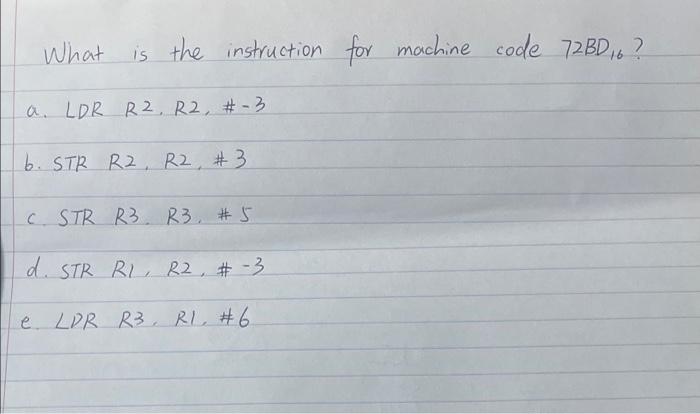 What is the instruction for machine code 72BD₁₆?
a. LDR R2, R2, #-3
b. STR R2, R2, #3
c. STR R3. R3. #5
d. STR R1, R2, #-3
e. LDR R3, R1, #6